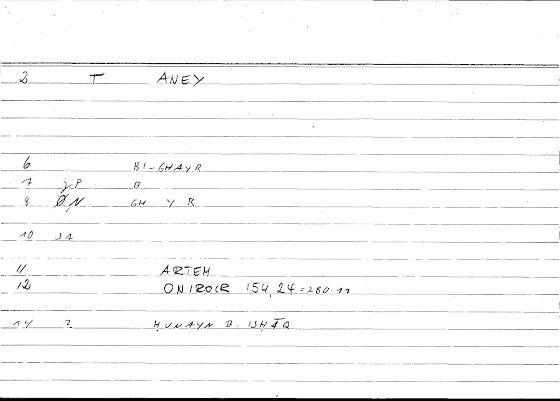 2 T ANEY
6 BI-GHAYR
7 γP B
8 ØN GH Y R
10 SA
11 ARTEM
12 ONIROCR 154, 24=280.11
14 2 ḤUNAYN B. ISḤĀQ